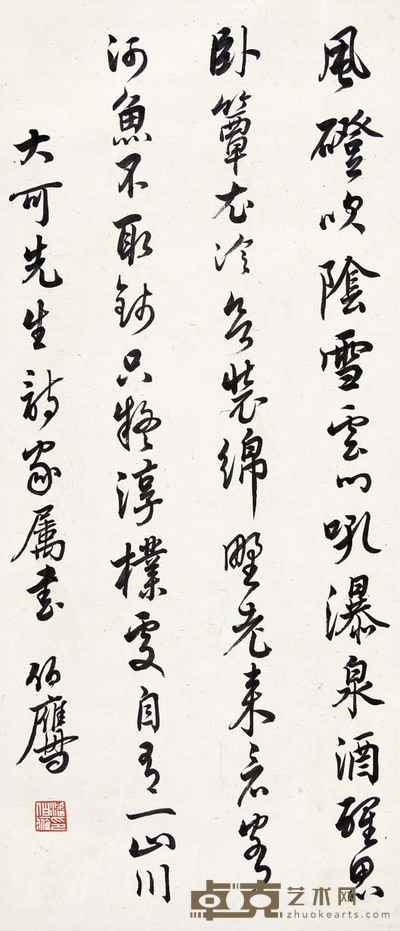 風磴吹陰雪雲門吼瀑泉酒醒思
卧簟衣冷欲裝綿野老來看客
河魚不取錢只疑淳樸處自有一山川
大可先生詩家属書 伯鷹
卓克艺术网
zhuokearts.com